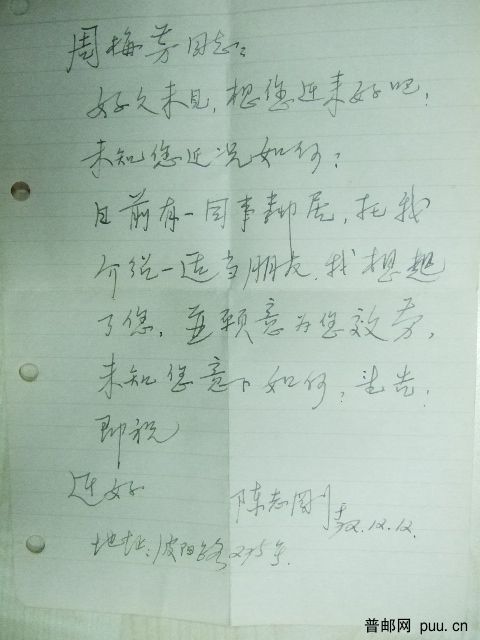 周梅芳同志：
好久未见，想您近来好吧，
未知您近况如何？
目前有一同事邻居，托我
介绍一适当朋友，我想起
了您，并愿意为您效劳，
未知您意下如何？望告，
即祝
近好
陈志刚 12.12.
地址：波阳路235号.
普邮网 puu.cn